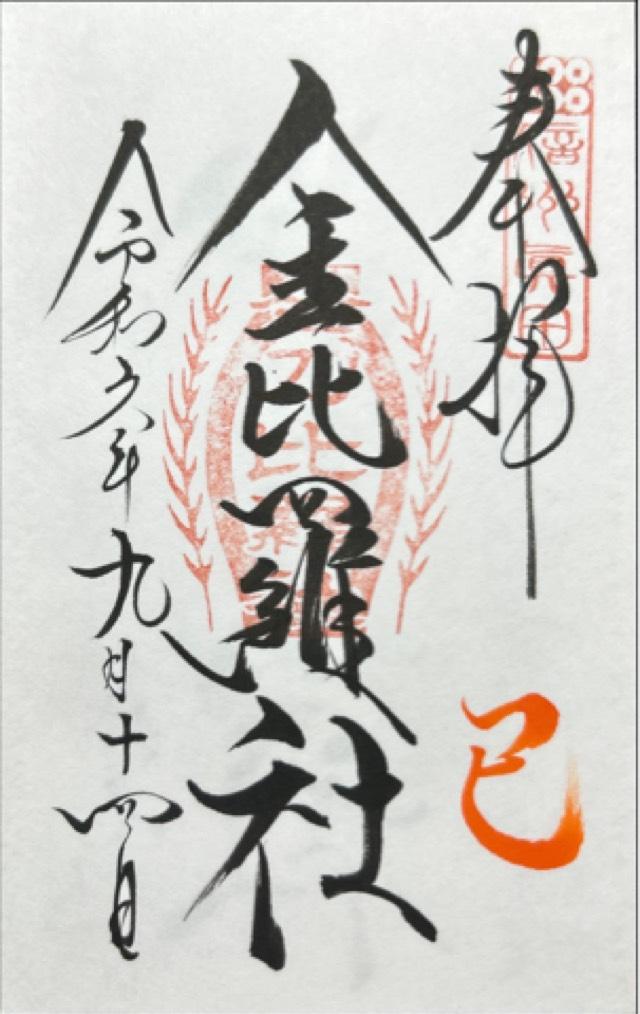 奉拝
信州真田
巳
金比羅社
令和六年九月十四日